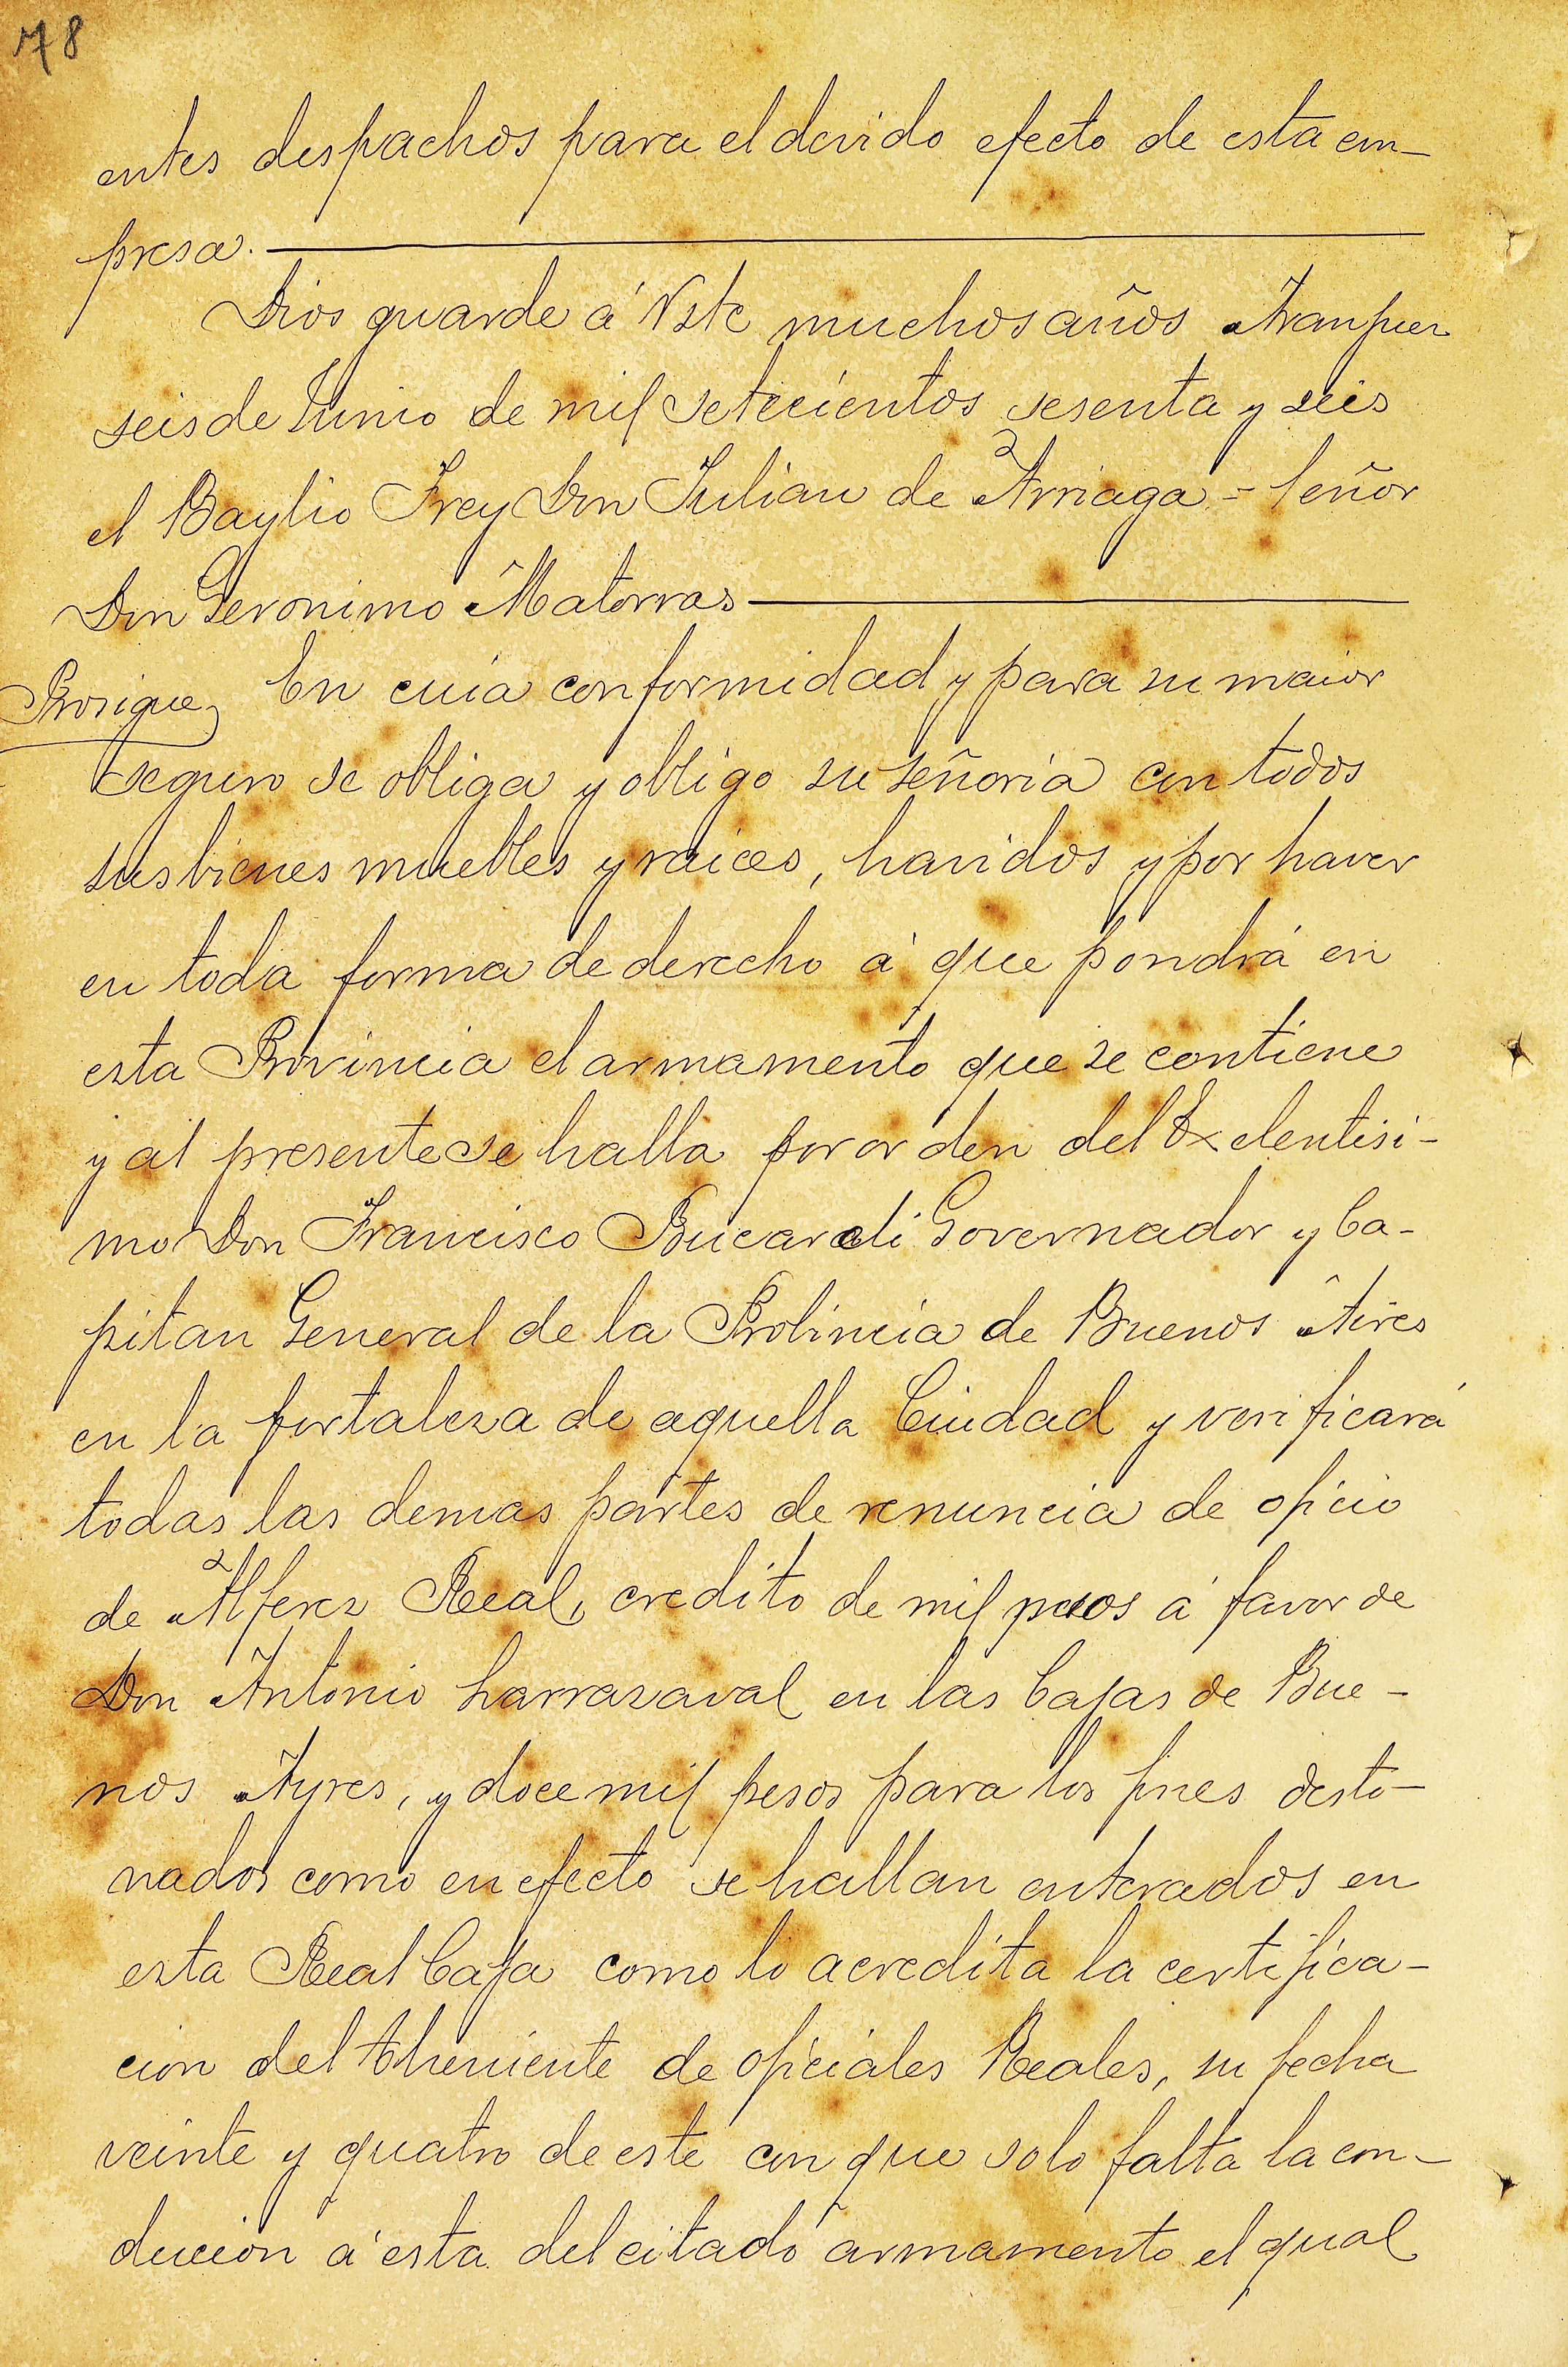 78
entes despachos para el devido efecto de esta em-
presa.
Dios guarde á Vste muchos años Aranjuez
seis de Junio de mil setecientos sesenta y seis
el Baylio Frey Don Julian de Arriaga = Señor
Don Geronimo Matorras
Prosigue
En cuia conformidad y para su maior
seguro se obliga y obligo su señoria con todos
sus bienes muebles y raices, havidos y por haver
en toda forma de derecho á que pondrá en
esta Provincia el armamento que se contiene
y al presente se halla por orden del Exelentisi-
mo Don Francisco Bucareli Governador y Ca-
pitan General de la Provincia de Buenos Aires
en la fortaleza de aquella Ciudad y verificará
todas las demas partes de renuncia de oficio
de Alferez Real, credito de mil pesos á favor de
Don Antonio Larrazaval en las Cajas de Bue-
nos Ayres, y doce mil pesos para los fines desti-
nados como en efecto se hallan enterados en
esta Real Caja como lo acredita la certifica-
cion del Theniente de oficiales Reales, su fecha
veinte y quatro de este con que solo falta la con-
ducion á esta del citado armamento el qual